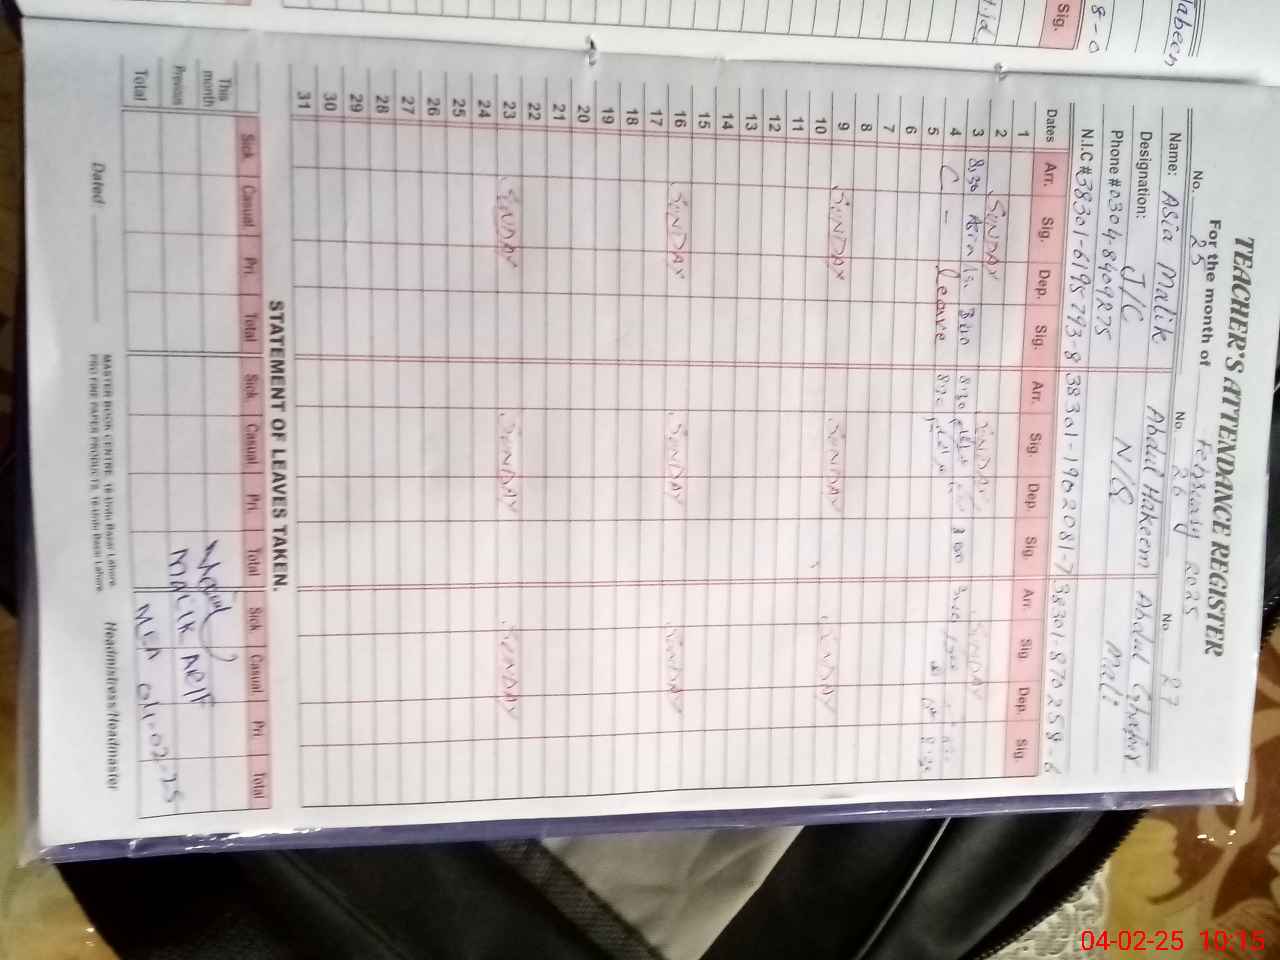 TEACHER'S ATTENDANCE REGISTER
For the month of February 2025
No. 25 No. 26 No 27
Name: Asia Malik Abdul Hakeem Abdul Ghafoor
Designation: J/C N/Q Mali
Phone # 0304-8409275
N.I.C # 38301-6195793-8 38301-1902081-7 38301-870258-6
Dates Arr. Sig. Dep. Sig. Arr. Sig. Dep. Sig. Arr. Sig Dep. Sig.
1
2 SUNDAY SUNDAY SUNDAY
3 8:30 Asia 3:00 8:30 3:00
4 C - Leave 8:30
5
6
7
8
9 SUNDAY SUNDAY SUNDAY
10
11
12
13
14
15
16 SUNDAY SUNDAY SUNDAY
17
18
19
20
21
22
23 SUNDAY SUNDAY SUNDAY
24
25
26
27
28
29
30
31
STATEMENT OF LEAVES TAKEN.
Sick Casual Pri Total Sick Casual Pri Total Sick Casual Pri Total
This month
Previous MALIK ARIF
Total MEA 04-02-25
Dated
MASTER BOOK CENTRE, 16 Urdu Bazar Lahore.
PRO FINE PAPER PRODUCTS, 16 Urdu Bazar Lahore.
Headmistress/Headmaster
Sig.
04-02-25 10:15